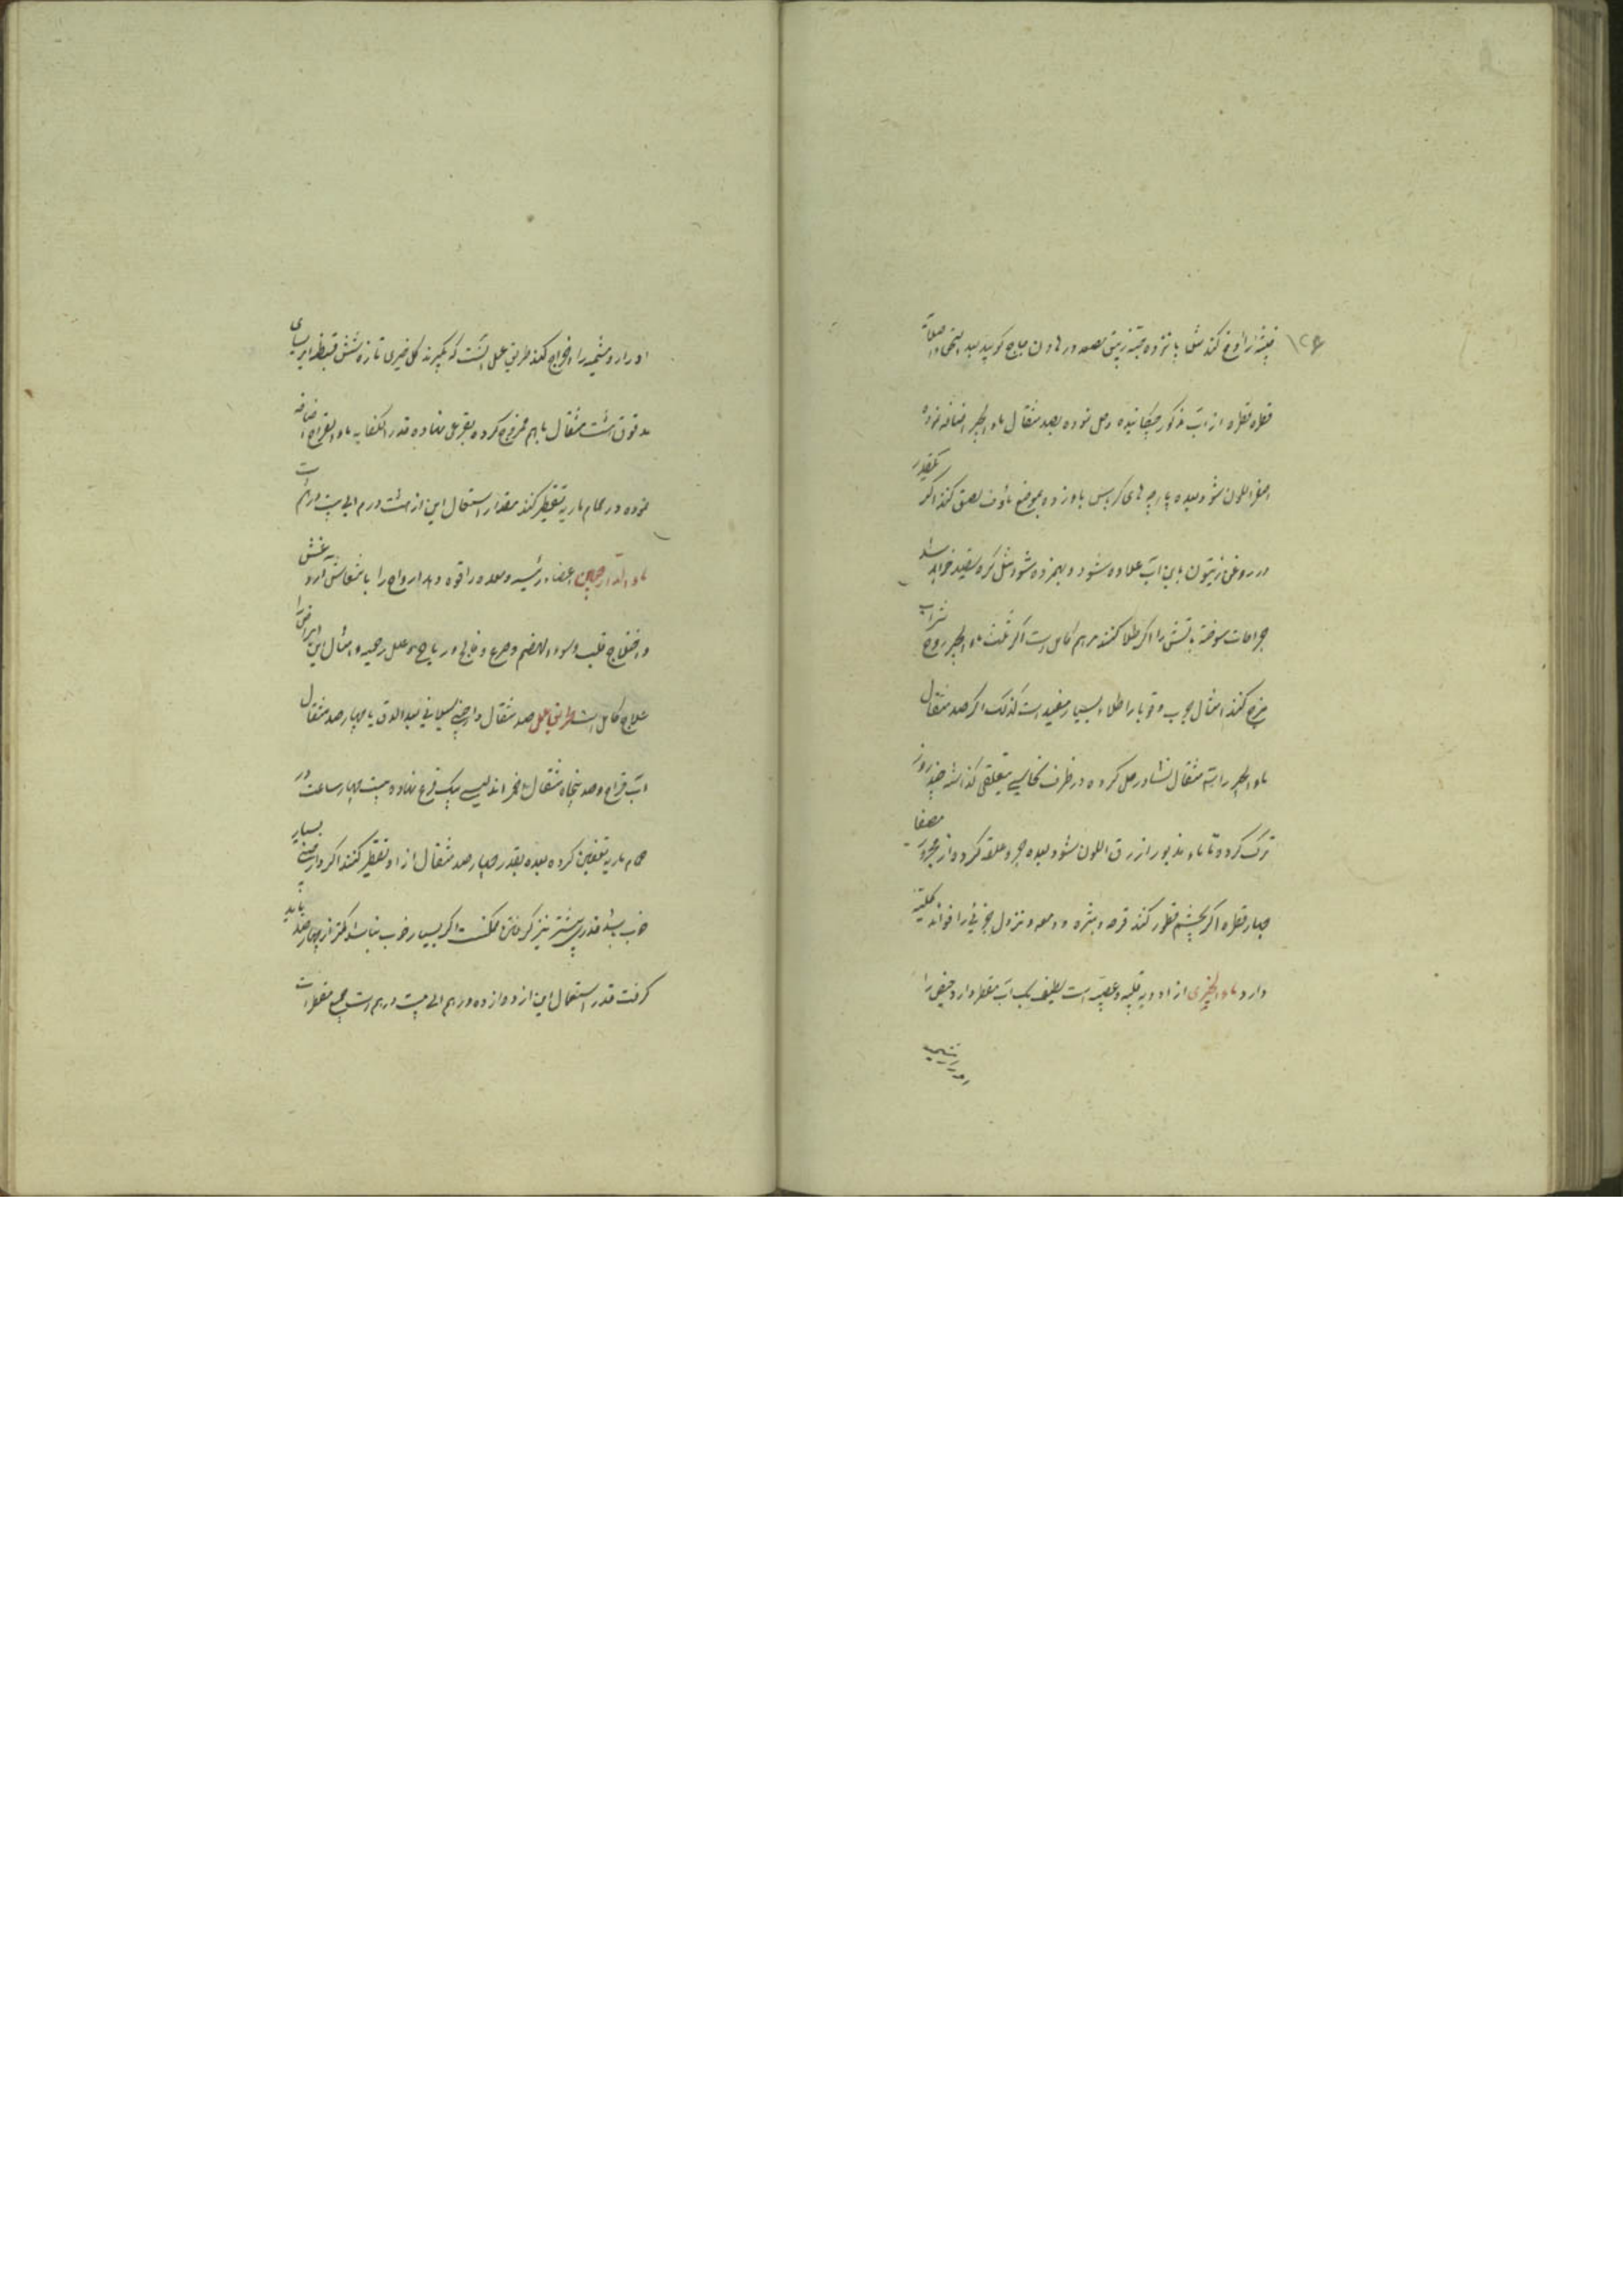 ۱۲۶
خبیثه را دفع کند مثلا پانزده حبه زیبق مصعد در هاون زجاج کوبیده بعد السحق و الصلایه
قطره قطره از آب مذکور چکانیده و حل نموده بصد مثقال ماء الجیر اضافه نموده
اصفر اللون شود بعده پارچه های کرباس باو زده بموضع ماؤف لصق کنند اگر بمقدار
در روغن زیتون باین آب علاوه شود و بهم زده شود مثل کره سفید خواهد شد
جراحات سوخته باتش را اگر طلا کنند مرهم کامل است اگر ثلث ماء الجیر روح شراب
مزج کنند امثال جرب و قوبا را طلاء بسیار مفید است کذلک اگر صد مثقال
ماء الجیر را سه مثقال نشادر حل کرده در ظرف نحاسی متعلقی گذاشته چند روز
ترک کرده تا ماء مذبور ازرق اللون شود بعده جر و علقه کرده از مجرور مصفا
چهار قطره اگر بچشم قطور کنند قرحه و بثره و دمعه و نزول بخرئی را فواید کلیه
دارد ماء الخیری از ادویه قلبیه و عصبیه است لطیف یک آب مقطر دارد حیض را
ادرار و مشیمه را اخراج کند طریق عمل اینست که بگیرند گل خیری تازه شش قبضه ایرسای
مدقوق هشت مثقال باهم ممزوج کرده بقرعی نهاده قدر الکفایه ماء القراح اضافه
نموده در حمام ماریه تقطیر کنند مقدار استعمال این از هشت درم الی بیست درم است
ماء الدارچین اعضاء رئیسه و معده را قوه دهد ارواح را بانتعاش آرد به غش
و اختلاج قلب و سوء الهضم و صرع و فالج و ریاح و علل رحمیه و امثال این امراض را
علاج کامل است طریق عمل صد مثقال دارچینی سیلانی بعد الدق با چهار صد مثقال
آب قراح و صد پنجاه مثقال خمر اندلیسی بیک قرع نهاده بیست چهار ساعت در
حمام ماریه تعفین کرده بعده بقدر چهار صد مثقال از او تقطیر کنند اگر دارچینی بسیار
خوب باشد قدری بیشتر نیز گرفتن ممکنست اگر بسیار خوب نباشد کمتر از چهار صد باید
گرفت قدر استعمال این از دوازده درهم الی بیست درهم است جمیع مقطرات